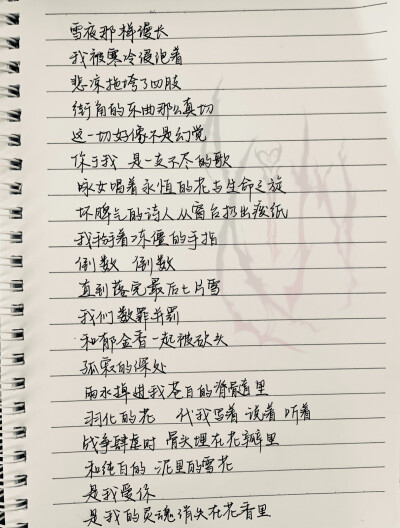 雪夜那样漫长
我被寒冷浸泡着
悲凉拖垮了四肢
街角的东曲那么真切
这一切好像不是幻觉
你于我 是一支不尽的歌
咏女唱着永恒的花与生命之旅
坏脾气的诗人从窗台扔出废纸
我掰着冻僵的手指
倒数 倒数
直到落完最后七片雪
我们数罪并罚
和郁金香一起被砍头
孤寂的深处
雨水掉进我苍白的脊髓里
羽化的花 代我写着 说着 听着
战争肆虐时 骨头埋在花瓣里
和纯白的 泥里的雪花
是我爱你
是我的灵魂消失在花香里